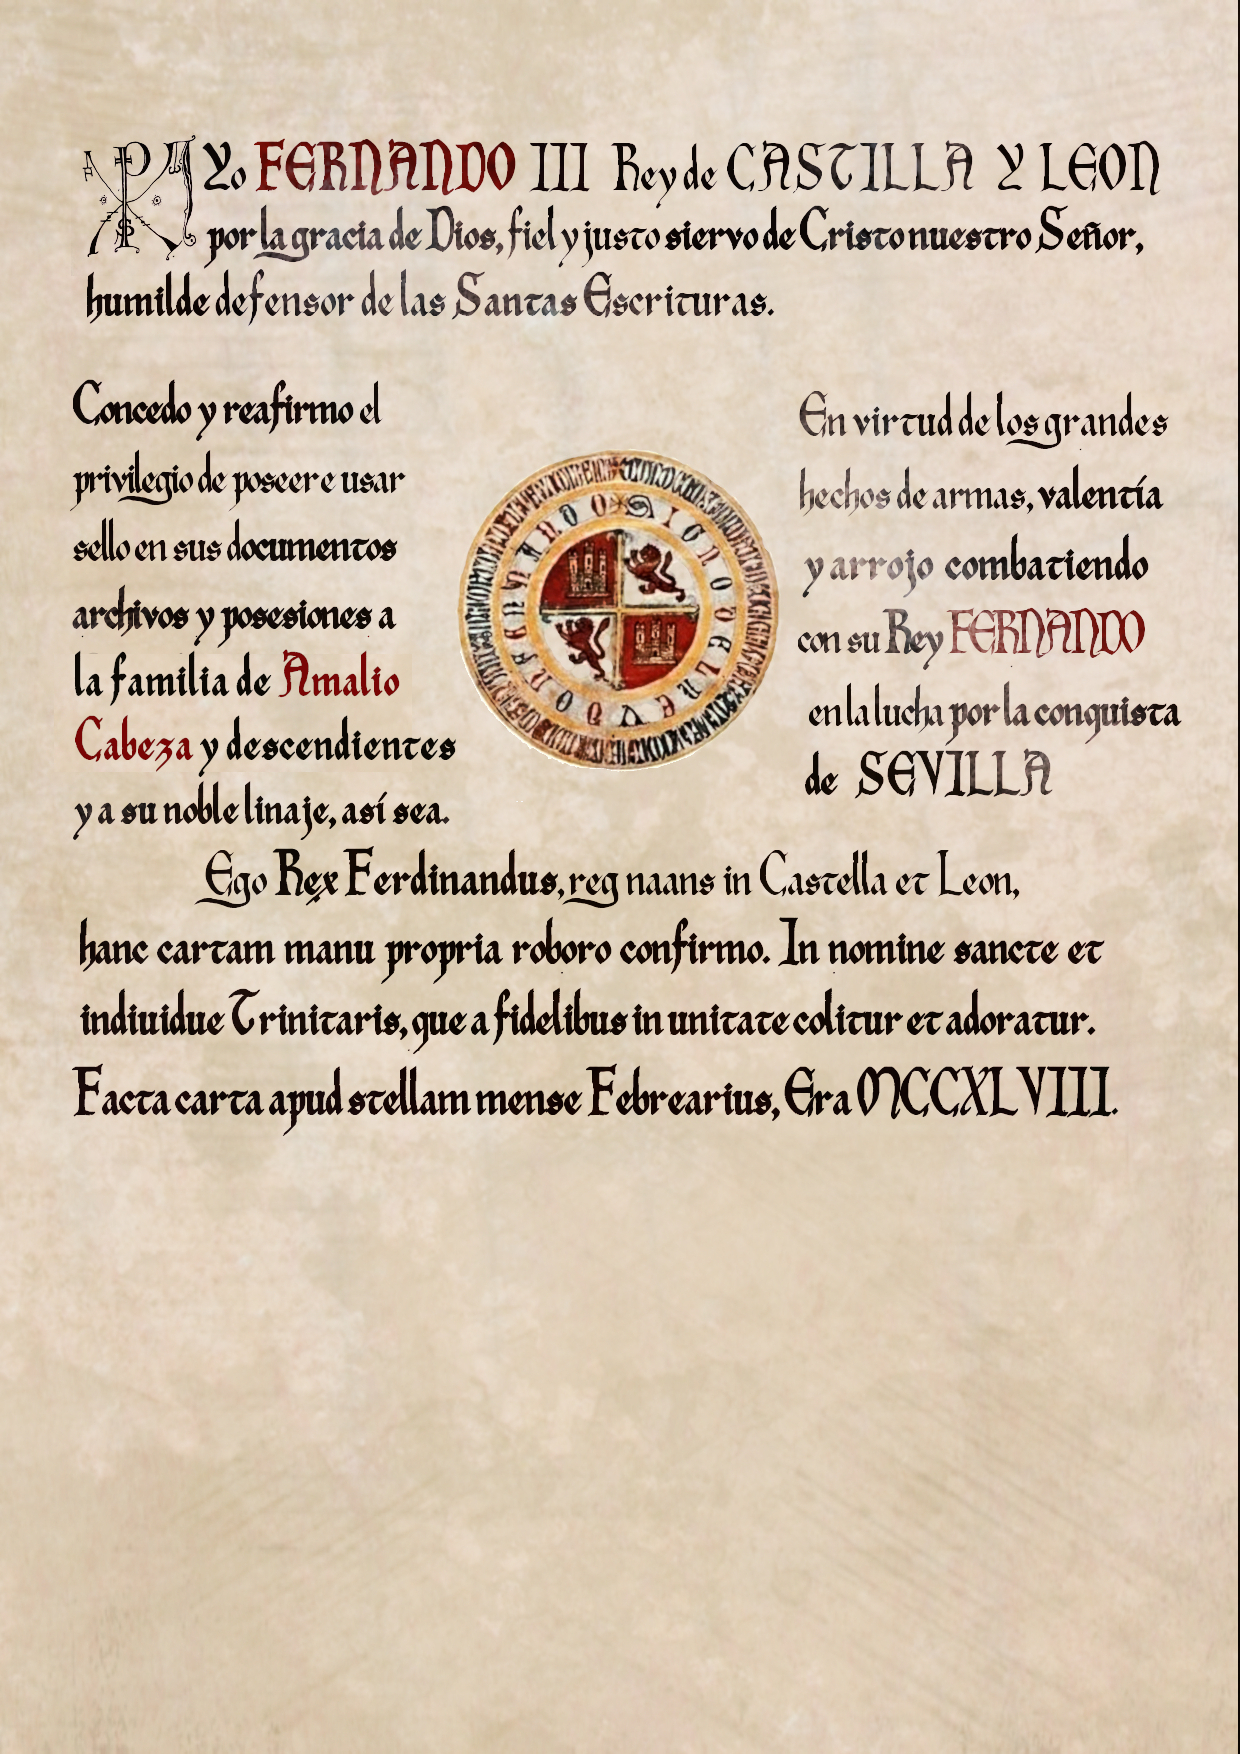 Yo FERNANDO III Rey de CASTILLA Y LEON
por la gracia de Dios, fiel y justo siervo de Cristo nuestro Señor,
humilde defensor de las Santas Escrituras.
Concedo y reafirmo el
privilegio de poseer e usar
sello en sus documentos
archivos y posesiones a
la familia de Amalio
Cabeza y descendientes
y a su noble linaje, así sea.
En virtud de los grandes
hechos de armas, valentía
y arrojo combatiendo
con su Rey FERNANDO
en la lucha por la conquista
de SEVILLA
Ego Rex Ferdinandus, reg naans in Castella et Leon,
hanc cartam manu propria roboro confirmo. In nomine sancte et
indiuidue Trinitaris, que a fidelibus in unitate colitur et adoratur.
Facta carta apud stellam mense Febrearius, Era MCCXLVIII.